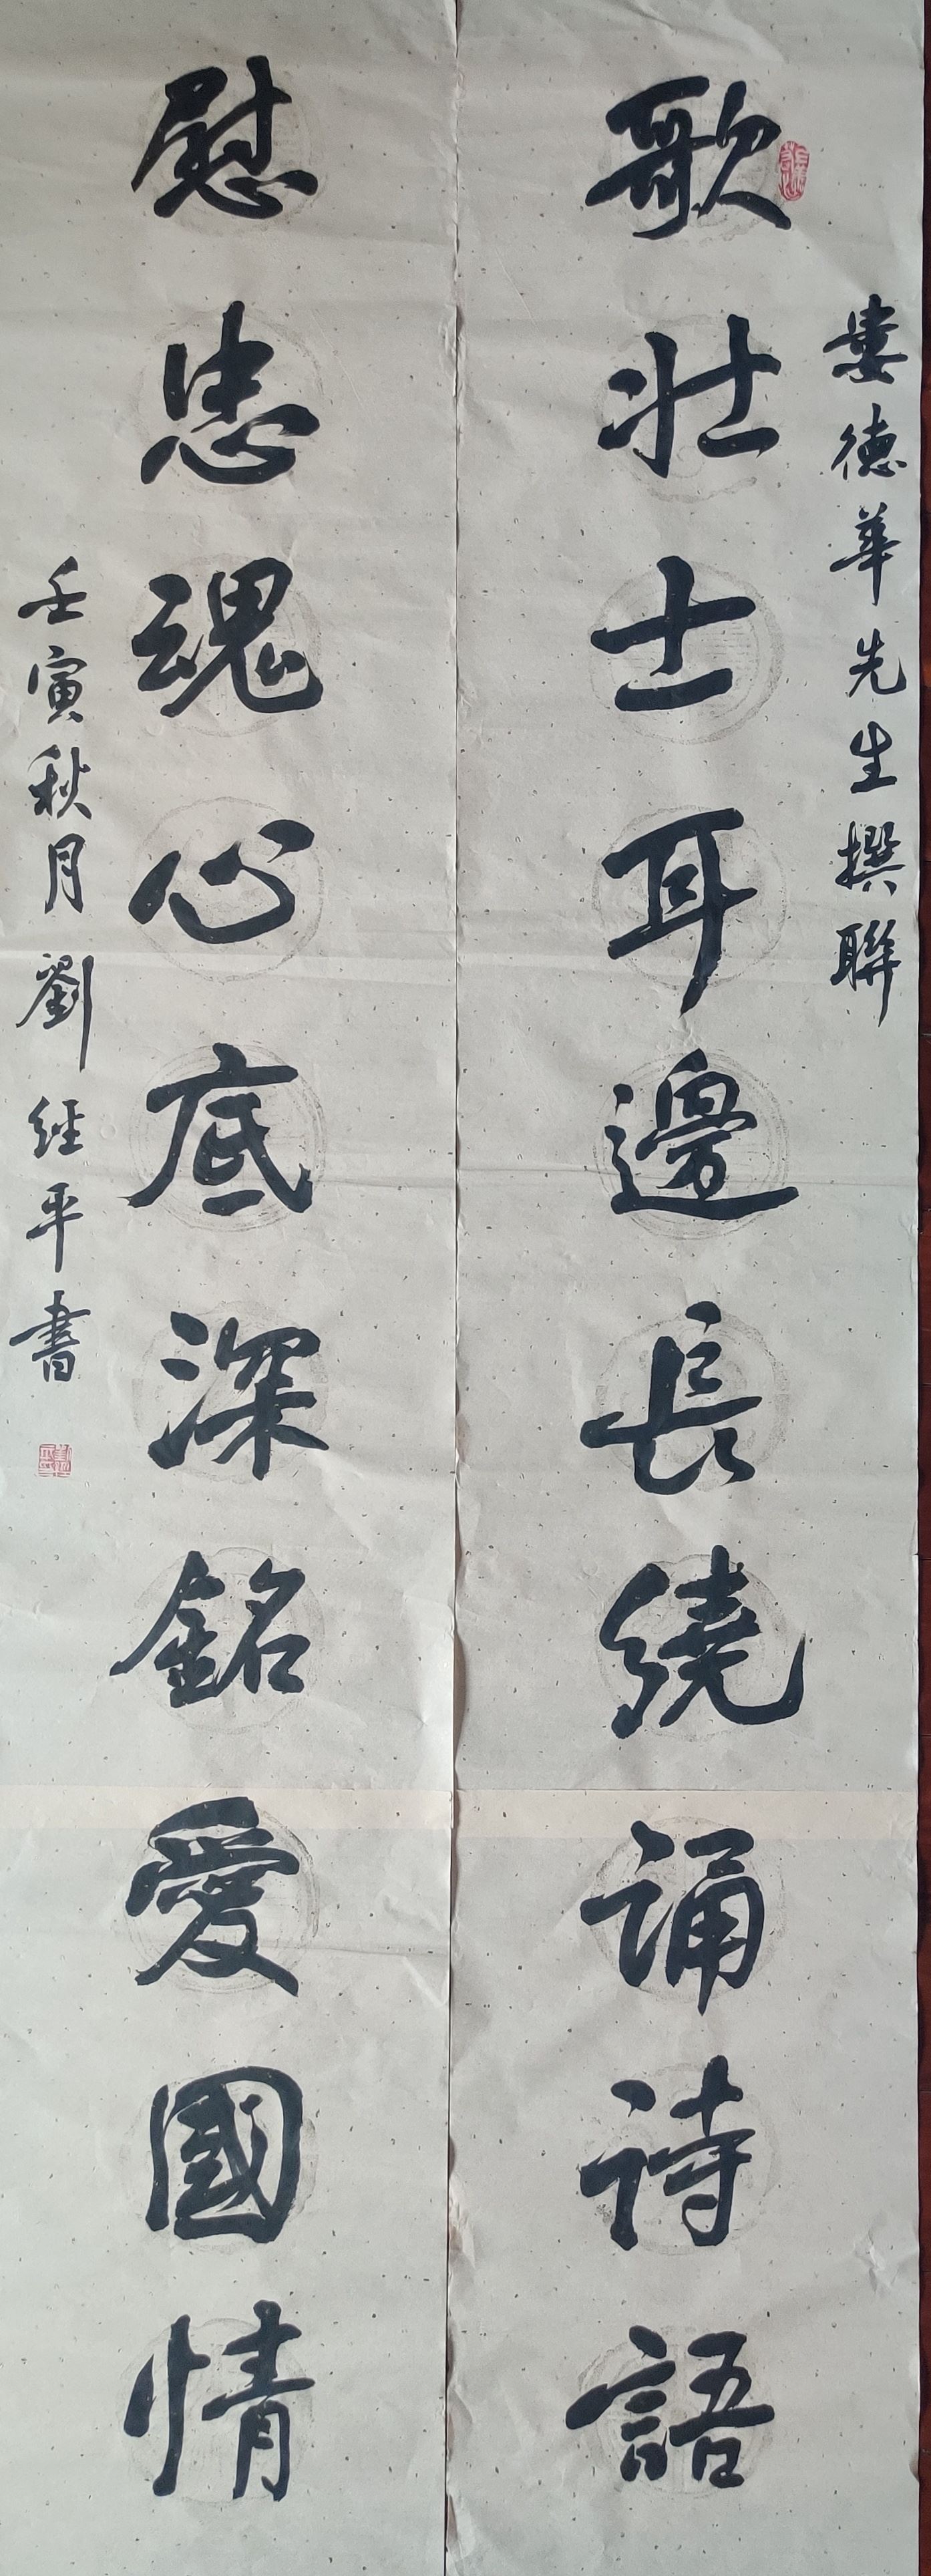 婁德華先生撰聯
歌壯士耳邊長繞誦詩語
慰忠魂心底深銘愛國情
壬寅秋月劉經平書